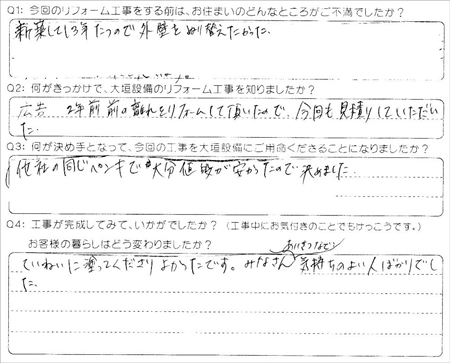 Q1: 今回のリフォーム工事をする前は、お住まいのどんなところがご不満でしたか?
新築して13年たつので外壁をぬり替えたかった。
Q2: 何がきっかけで、大垣設備のリフォーム工事を知りましたか?
広告 2年前前の離れをリフォームして頂いたので、今回も見積りしていただい
た.
Q3: 何が決め手となって、今回の工事を大垣設備にご用命くださることになりましたか?
他社の同じペンキで大分値段が安かったので決めました
Q4: 工事が完成してみて、いかがでしたか? (工事中にお気付きのことでもけっこうです。)
お客様の暮らしはどう変わりましたか?
あいさつなど
ていねいに塗ってくださりよかったです。みなさん気持ちのよい人ばかりでし
た.